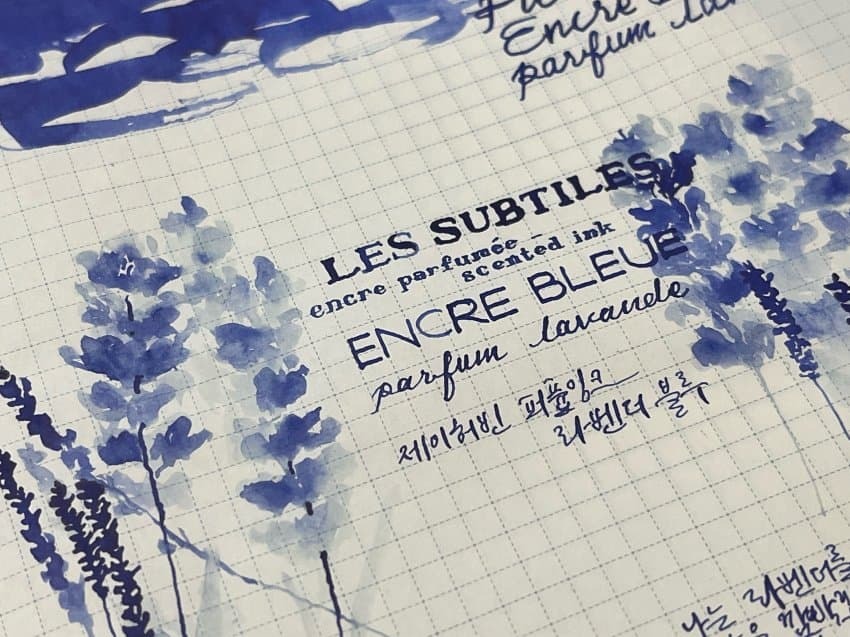 Encre
parfum
LES SUBTILES
encre parfumée
scented ink
ENCRE BLEUE
parfum lavande
제이허빈 퍼퓸잉크
라벤더 블루
나는 라벤더를